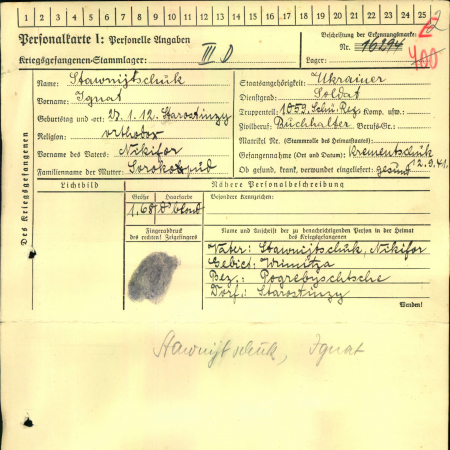 1 2 3 4 5 6 7 8 9 10 11 12 13 14 15 16 17 18 19 20 21 22 23 24 25
Personalkarte I: Personelle Angaben
Kriegsgefangenen-Stammlager: III D
Beschriftung der Erkennungsmarke:
Nr. 16294
Lager:
Des Kriegsgefangenen
Name: Stawnijtschuk
Vorname: Ignat
Geburtstag und -ort: 27.1.12. Starostinzy
Religion: orthodox
Vorname des Vaters: Nikifor
Familienname der Mutter:
Staatsangehörigkeit: Ukrainer
Dienstgrad: Soldat
Truppenteil: 1059. Schü. Reg. Komp. usw.:
Zivilberuf: Buchhalter Berufs-Gr.:
Matrikel Nr. (Stammrolle des Heimatstaates):
Gefangennahme (Ort und Datum): Krementschuk
12.9.41.
Ob gesund, krank, verwundet eingeliefert: gesund
Lichtbild
Nähere Personalbeschreibung
Größe
Haarfarbe
Besondere Kennzeichen:
1,68 D'blond
Fingerabdruck
des rechten! Zeigefingers
Name und Anschrift der zu benachrichtigenden Person in der Heimat
des Kriegsgefangenen
Vater: Stawnijtschuk, Nikifor
Gebiet: Winnitza
Bez.: Pogrebyschtsche
Dorf: Starostinzy
Wenden!
Stawnijtschuk, Ignat